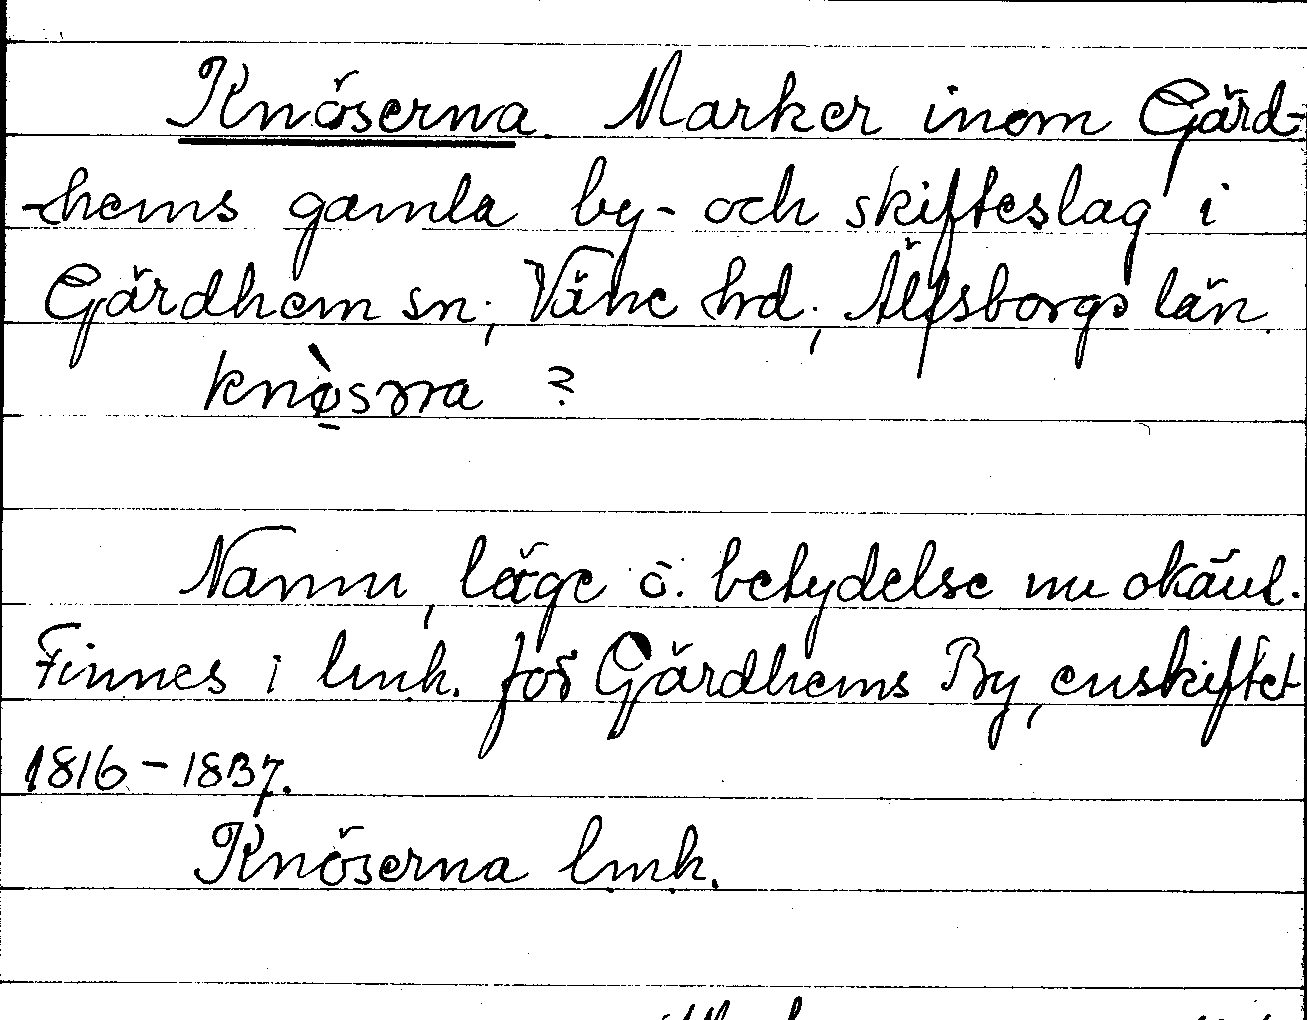 Knöserna. Marker inom Gärd-
-hems gamla by- och skifteslag i
Gärdhem sn; Väne hd; Älfsborgs län.
knø̠̀sərna ?
Namn, läge o. betydelse nu okänt.
Finnes i lmh. för Gärdhems By, enskiftet
1816-1837.
Knöserna lmh.